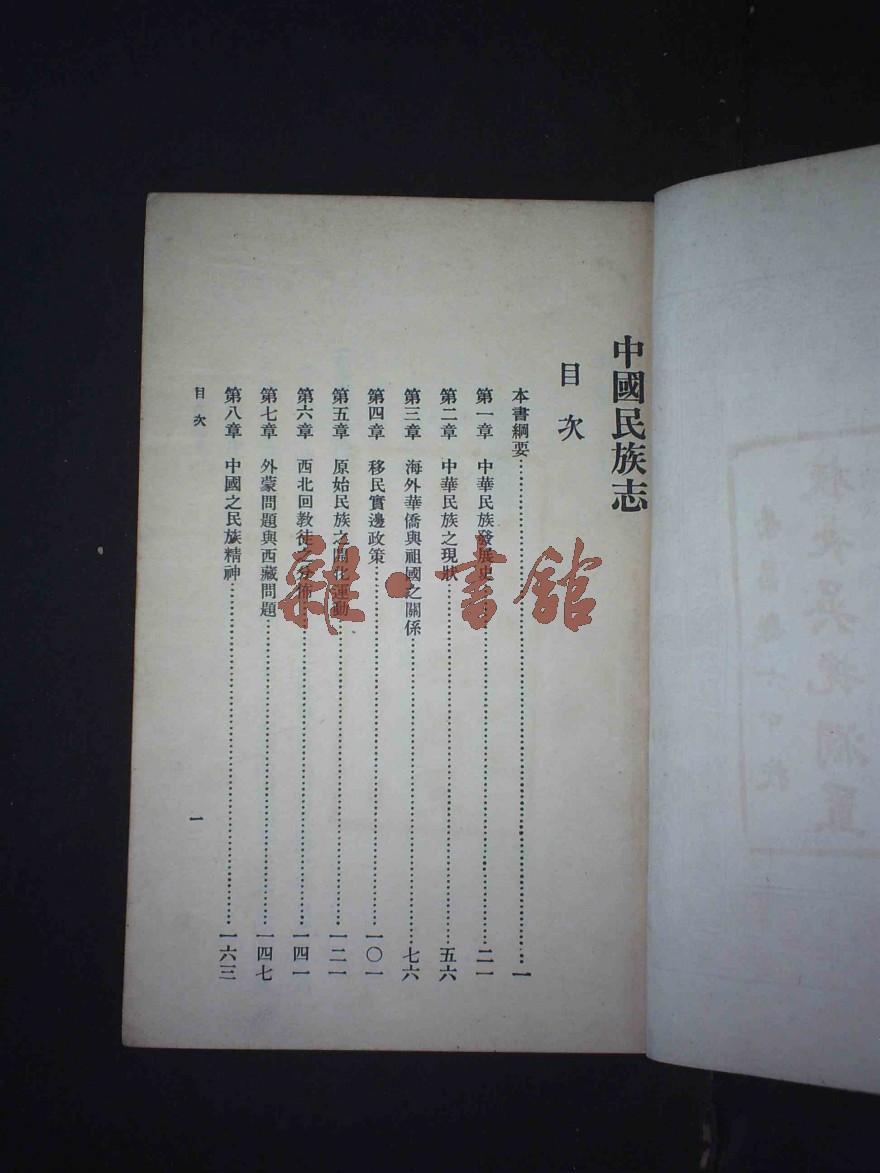 中國民族志
目次
本書綱要……一
第一章 中華民族發展史……二一
第二章 中華民族之現狀……五六
第三章 海外華僑與祖國之關係……七六
第四章 移民實邊政策……一〇一
第五章 原始民族之開化運動……一二一
第六章 西北回教徒之分佈……一四一
第七章 外蒙問題與西藏問題……一四七
第八章 中國之民族精神……一六三
目次
一
雜·書館